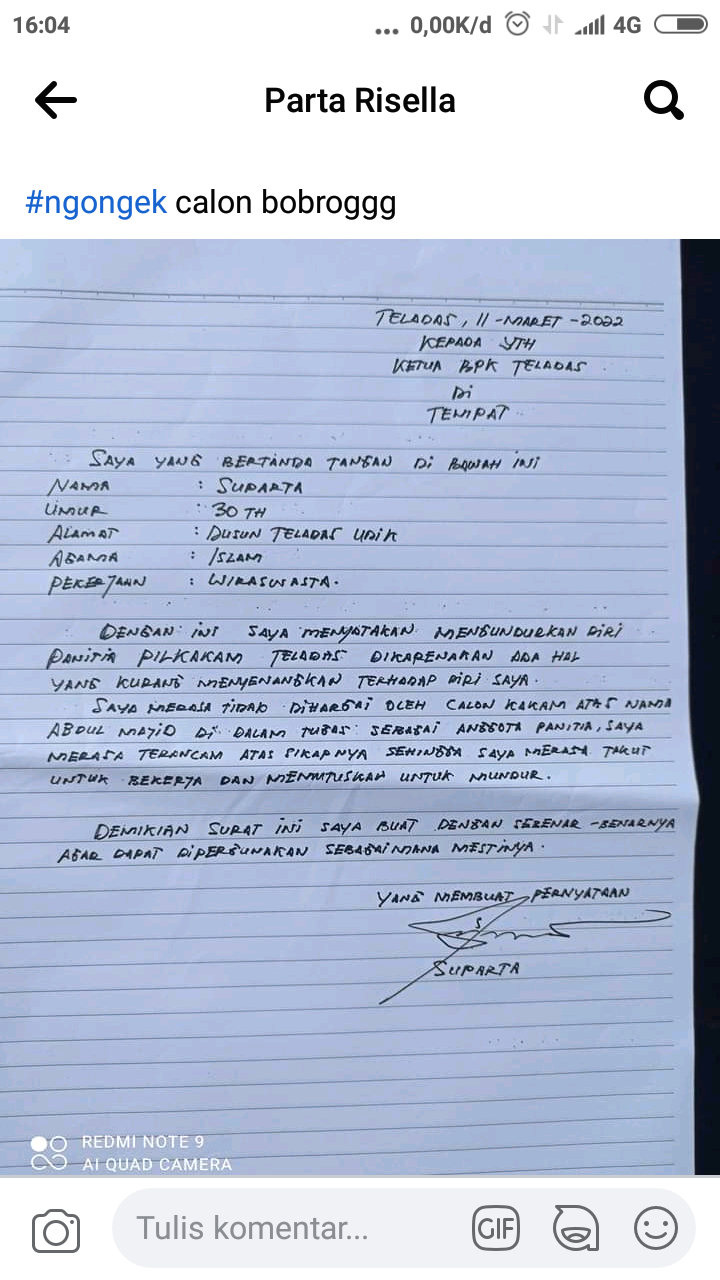 16:04
... 0,00K/d 4G
Parta Risella
#ngongek calon bobroggg
TELADAS, 11 - MARET - 2022
KEPADA YTH
KETUA BPK TELADAS
Di
TEMPAT
SAYA YANG BERTANDA TANGAN Di BAWAH INI
NAMA : SUPARTA
UMUR : 30 TH
ALAMAT : DUSUN TELADAS UDIK
AGAMA : ISLAM
PEKERJAAN : WIRASWASTA.
DENGAN INI SAYA MENYATAKAN MENGUNDURKAN DIRI
PANITIA PILKAKAM TELADAS DIKARENAKAN ADA HAL
YANG KURANG MENYENANGKAN TERHADAP DIRI SAYA.
SAYA MERASA TIDAK DIHARGAI OLEH CALON KAKAM ATAS NAMA
ABDUL MAJID Di DALAM TUGAS SEBAGAI ANGGOTA PANITIA, SAYA
MERASA TERANCAM ATAS SIKAPNYA SEHINGGA SAYA MERASA TAKUT
UNTUK BEKERJA DAN MEMUTUSKAN UNTUK MUNDUR.
DEMIKIAN SURAT INI SAYA BUAT DENGAN SEBENAR - BENARNYA
AGAR DAPAT DIPERGUNAKAN SEBAGAIMANA MESTINYA.
YANG MEMBUAT PERNYATAAN
SUPARTA
REDMI NOTE 9
AI QUAD CAMERA
Tulis komentar...
GIF